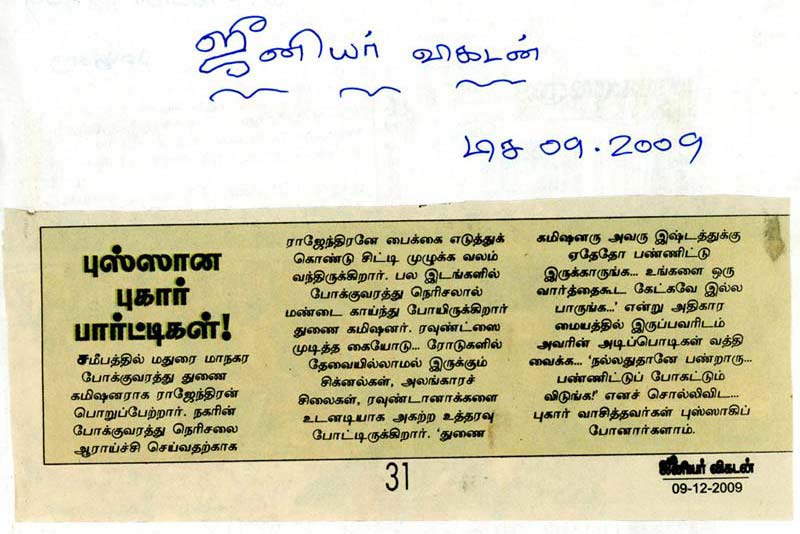 ஜூனியர் விகடன்
டிச 09.2009
புஸ்ஸான
புகார்
பார்ட்டிகள்!
சமீபத்தில் மதுரை மாநகர
போக்குவரத்து துணை
கமிஷனராக ராஜேந்திரன்
பொறுப்பேற்றார். நகரின்
போக்குவரத்து நெரிசலை
ஆராய்ச்சி செய்வதற்காக
ராஜேந்திரனே பைக்கை எடுத்துக்
கொண்டு சிட்டி முழுக்க வலம்
வந்திருக்கிறார். பல இடங்களில்
போக்குவரத்து நெரிசலால்
மண்டை காய்ந்து போயிருக்கிறார்
துணை கமிஷனர். ரவுண்ட்ஸை
முடித்த கையோடு... ரோடுகளில்
தேவையில்லாமல் இருக்கும்
சிக்னல்கள், அலங்காரச்
சிலைகள், ரவுண்டானாக்களை
உடனடியாக அகற்ற உத்தரவு
போட்டிருக்கிறார். 'துணை
கமிஷனரு அவரு இஷ்டத்துக்கு
ஏதேதோ பண்ணிட்டு
இருக்காருங்க... உங்களை ஒரு
வார்த்தைகூட கேட்கவே இல்ல
பாருங்க...' என்று அதிகார
மையத்தில் இருப்பவரிடம்
அவரின் அடிப்பொடிகள் வத்தி
வைக்க... 'நல்லதுதானே பண்றாரு...
பண்ணிட்டுப் போகட்டும்
விடுங்க!' எனச் சொல்லிவிட...
புகார் வாசித்தவர்கள் புஸ்ஸாகிப்
போனார்களாம்.
31
ஜூனியர் விகடன்
09-12-2009